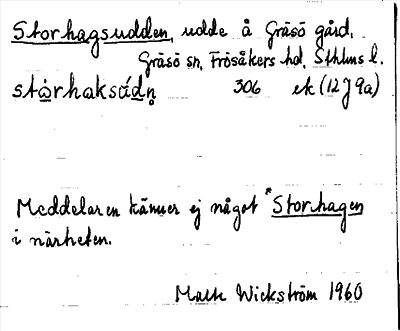 Storhagsudden, udde å Gräsö gård,
Gräsö sn, Frösåkers hd, Sthlms l.
stòrhaksúdn̥ 306 ek (12 J 9a)
Meddelaren känner ej något *Storhagen
i närheten.
Wickström 1960